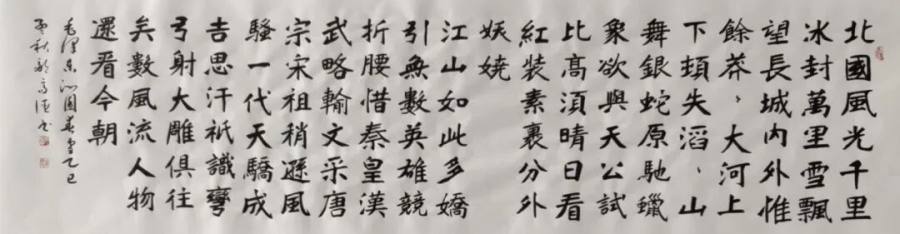 北國風光千里
冰封萬里雪飄
望長城內外惟
餘莽、大河上
下頓失滔、山
舞銀蛇原馳蠟
象欲與天公試
比高須晴日看
紅裝素裹分外
妖嬈
江山如此多嬌
引無數英雄競
折腰惜秦皇漢
武略輸文采唐
宗宋祖稍遜風
騷一代天驕成
吉思汗祇識彎
弓射大雕俱往
矣數風流人物
還看今朝
毛澤東沁園春雪乙巳
秋